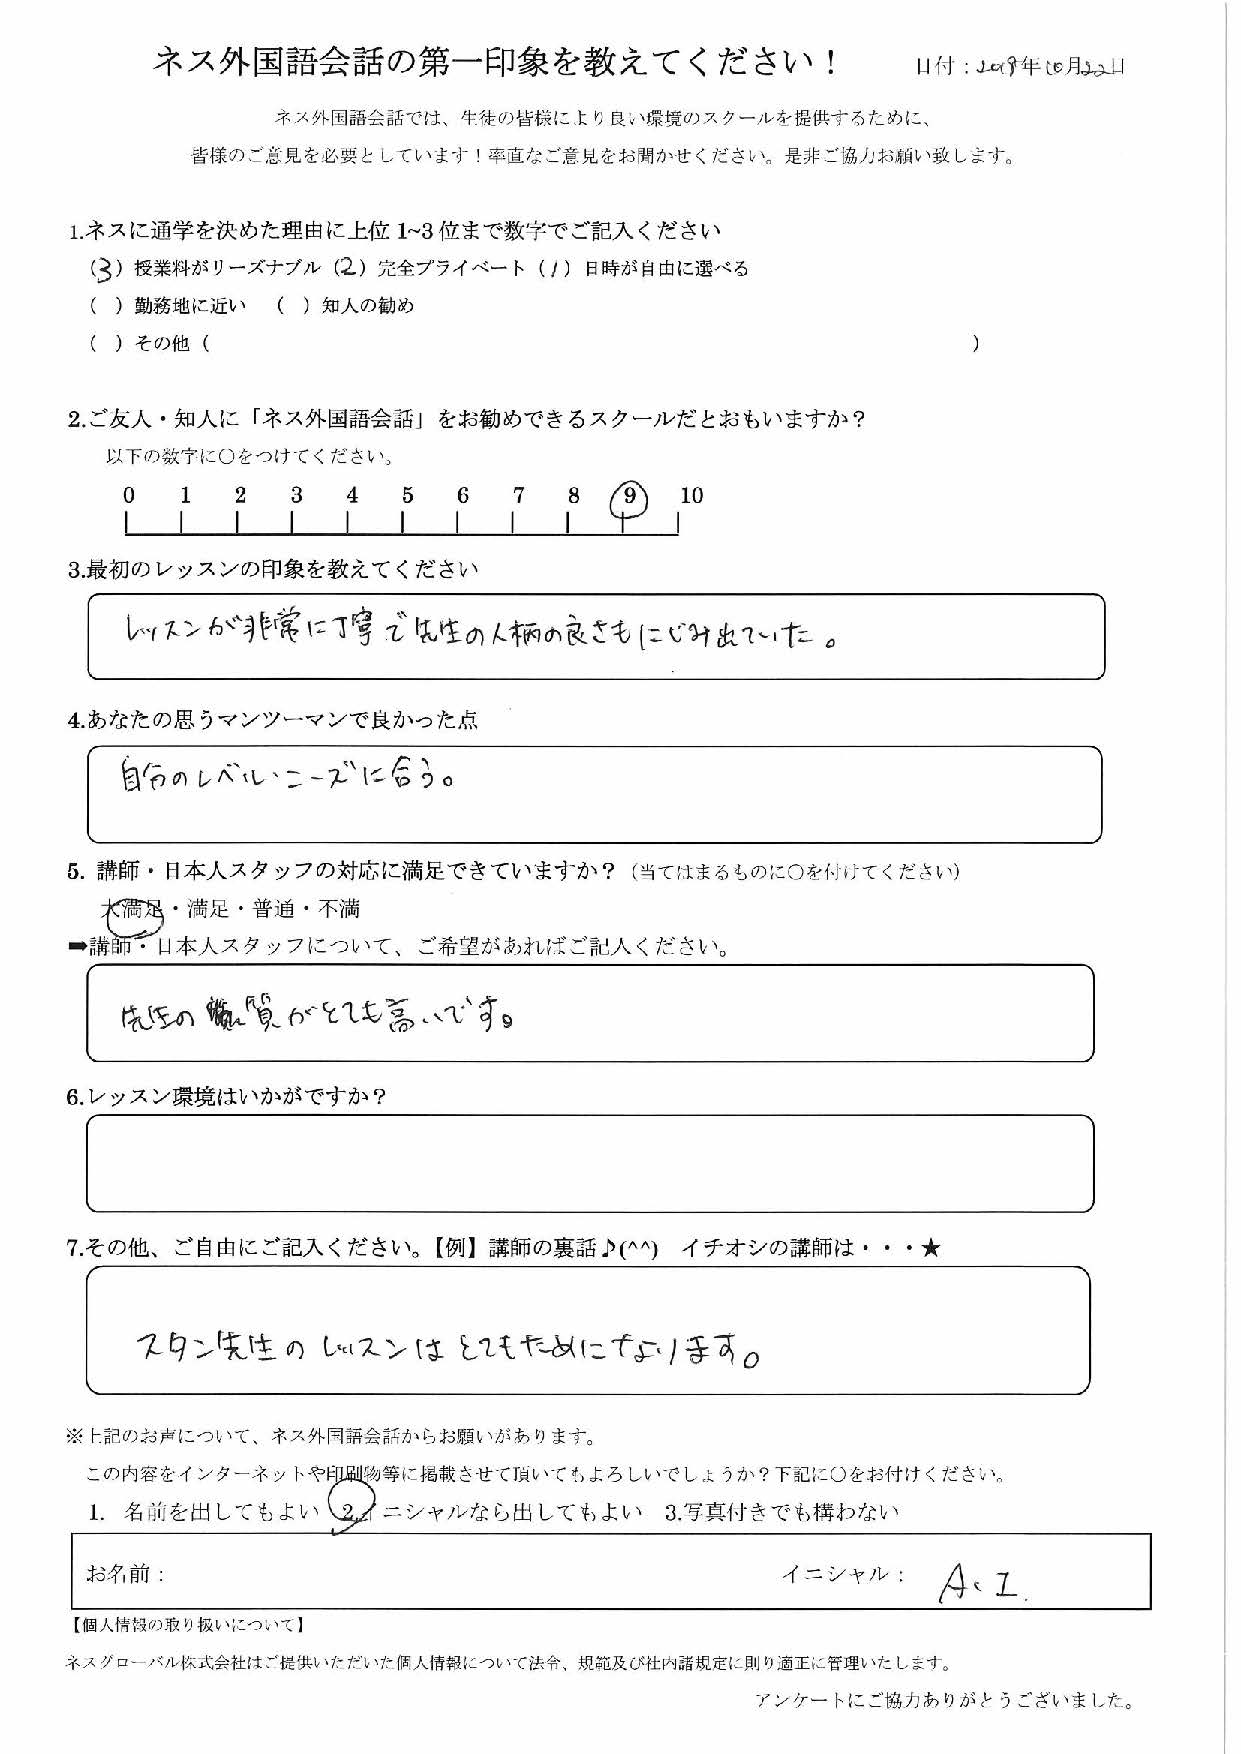 ネス外国語会話の第一印象を教えてください！
日付：2018年10月22日
ネス外国語会話では、生徒の皆様により良い環境のスクールを提供するために、
皆様のご意見を必要としています！率直なご意見をお聞かせください。是非ご協力お願い致します。
1.ネスに通学を決めた理由に上位1~3位まで数字でご記入ください
（3）授業料がリーズナブル（2）完全プライベート（1）日時が自由に選べる
（ ）勤務地に近い （ ）知人の勧め
（ ）その他（ ）
2.ご友人・知人に「ネス外国語会話」をお勧めできるスクールだとおもいますか？
以下の数字に〇をつけてください。
0 1 2 3 4 5 6 7 8 9 10
3.最初のレッスンの印象を教えてください
レッスンが非常に丁寧で先生の人柄の良さもにじみ出ていた。
4.あなたの思うマンツーマンで良かった点
自分のレベル・ニーズに合う。
5. 講師・日本人スタッフの対応に満足できていますか？（当てはまるものに〇を付けてください）
大満足・満足・普通・不満
➡講師・日本人スタッフについて、ご希望があればご記入ください。
先生の質がとても高いです。
6.レッスン環境はいかがですか？
7.その他、ご自由にご記入ください。【例】講師の裏話♪(^^) イチオシの講師は・・・★
スタン先生のレッスンはとてもためになります。
※上記のお声について、ネス外国語会話からお願いがあります。
この内容をインターネットや印刷物等に掲載させて頂いてもよろしいでしょうか？下記に〇をお付けください。
1. 名前を出してもよい 2.イニシャルなら出してもよい 3.写真付きでも構わない
お名前： イニシャル： A.I.
【個人情報の取り扱いについて】
ネスグローバル株式会社はご提供いただいた個人情報について法令、規範及び社内諸規定に則り適正に管理いたします。
アンケートにご協力ありがとうございました。